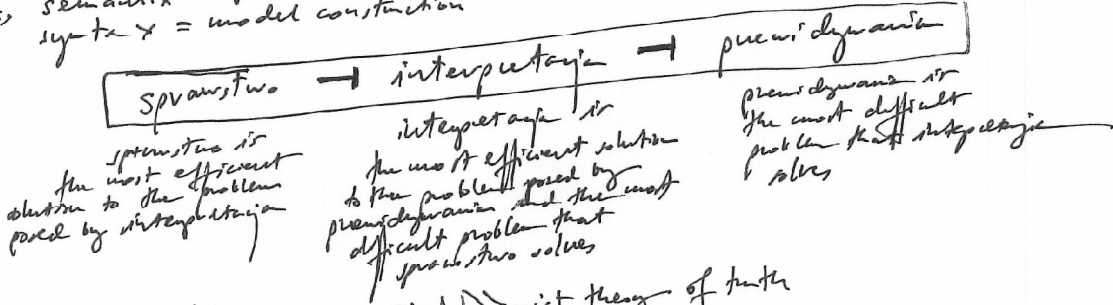 semantix
syntax = model construction
sprawstwo → interpretacja → przewidywania
sprawstwo is
the most efficient
solution to the problem
posed by interpretacja
interpretacja is
the most efficient solution
to the problem posed by
przewidywania and the most
difficult problem that
sprawstwo solves
przewidywania is
the most difficult
problem that interpretacja
solves
theory of truth